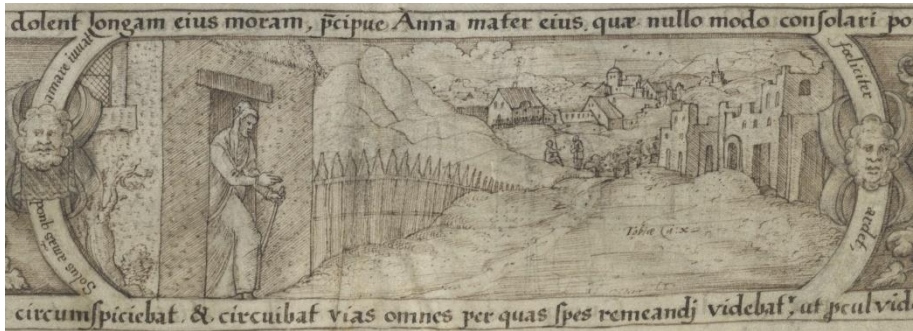 dolent longam eius moram, p̄cipue Anna mater eius, quæ nullo modo consolari po
amare iuuat
fœliciter
Tobiæ Ca: x
ardet,
Solus amās
circumspiciebat, & circuibat vias omnes per quas spes remeandj videbat^r, ut p̱cul vid